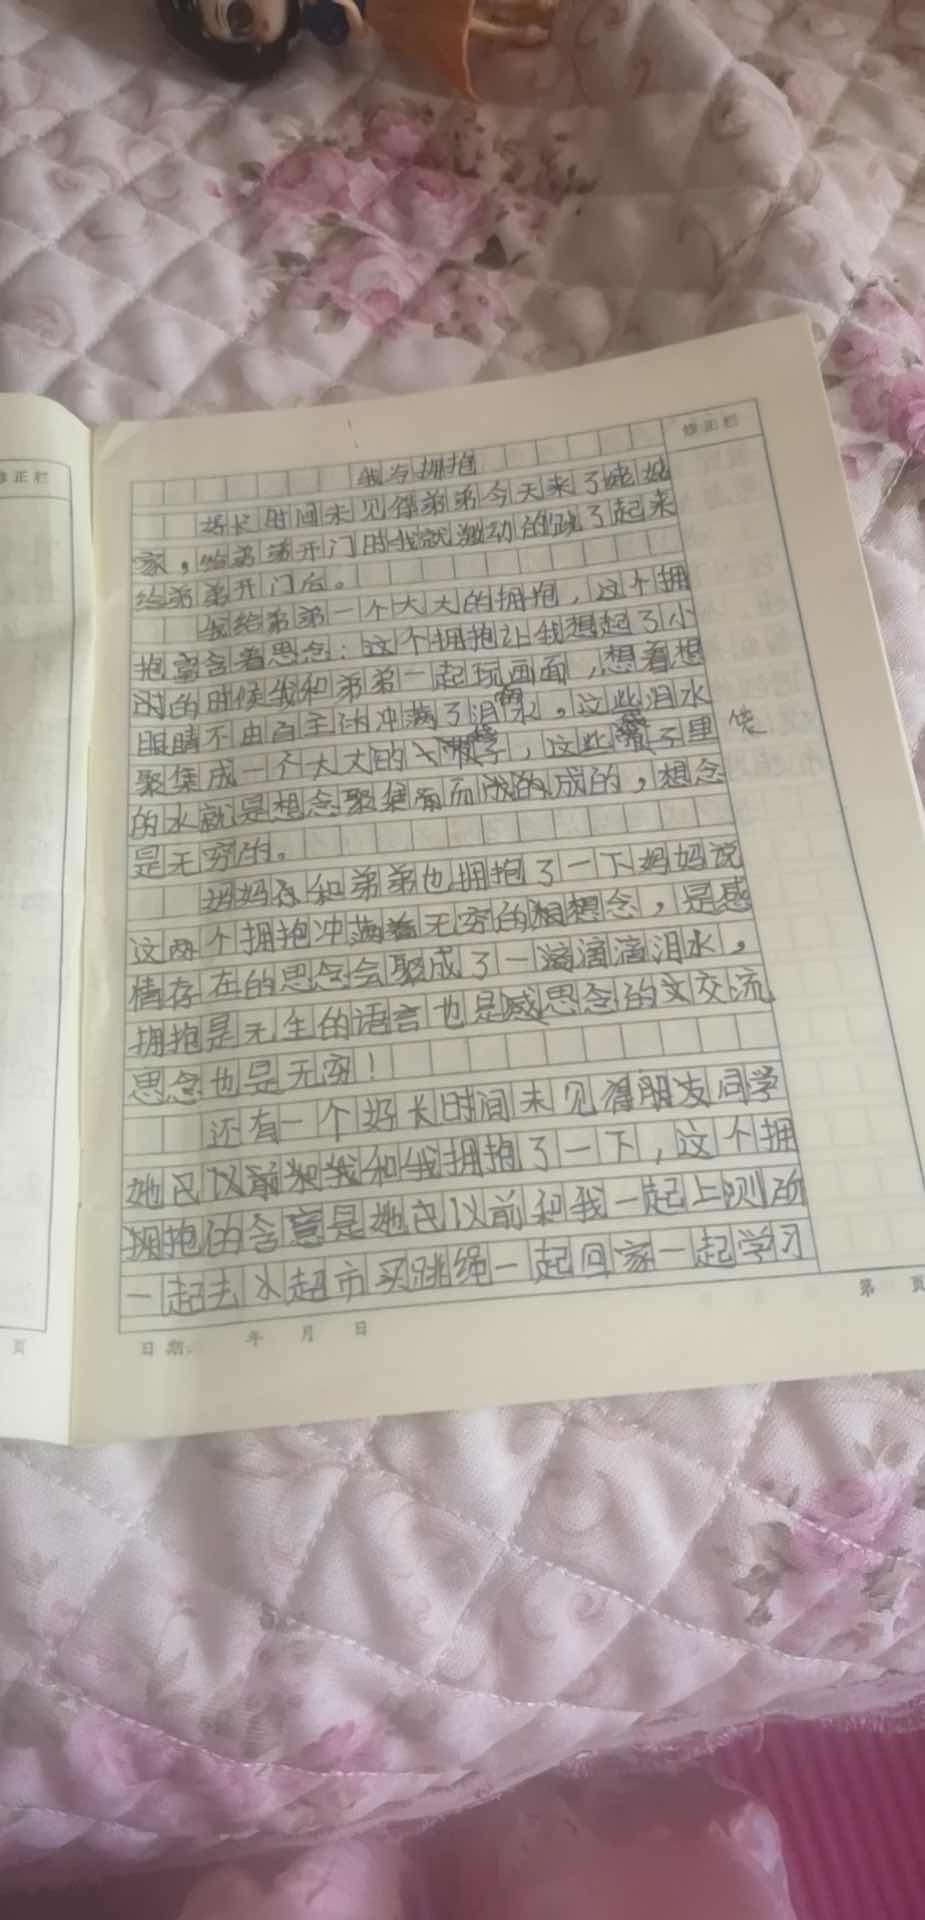 修正栏
修正栏
我与拥抱
好长时间未见得弟弟今天来了姥姥
家，给弟弟开门时我就激动的跳了起来
给弟弟开门后。
我给弟弟一个大大的拥抱，这个拥
抱富含着思念：这个拥抱让我想起了小
时的时候我和弟弟一起玩画面，想着想
眼睛不由自主冲满了泪水，这些泪水
聚集成一个大大的，这些子里
的水就是想念聚集而成的，想念
是无穷的。
妈妈和弟弟也拥抱了一下妈妈说
这两个拥抱冲满着无穷的想念，是感
情存在的思念会聚成了一滴滴泪水，
拥抱是无生的语言也是思念的交流
思念也是无穷！
还有一个好长时间未见得朋友同学
她已以前和我和我拥抱了一下，这个拥
拥抱的含意是她已以前和我一起上厕所
一起去超市买跳绳一起回家一起学习
日期： 年 月 日
第 页
页